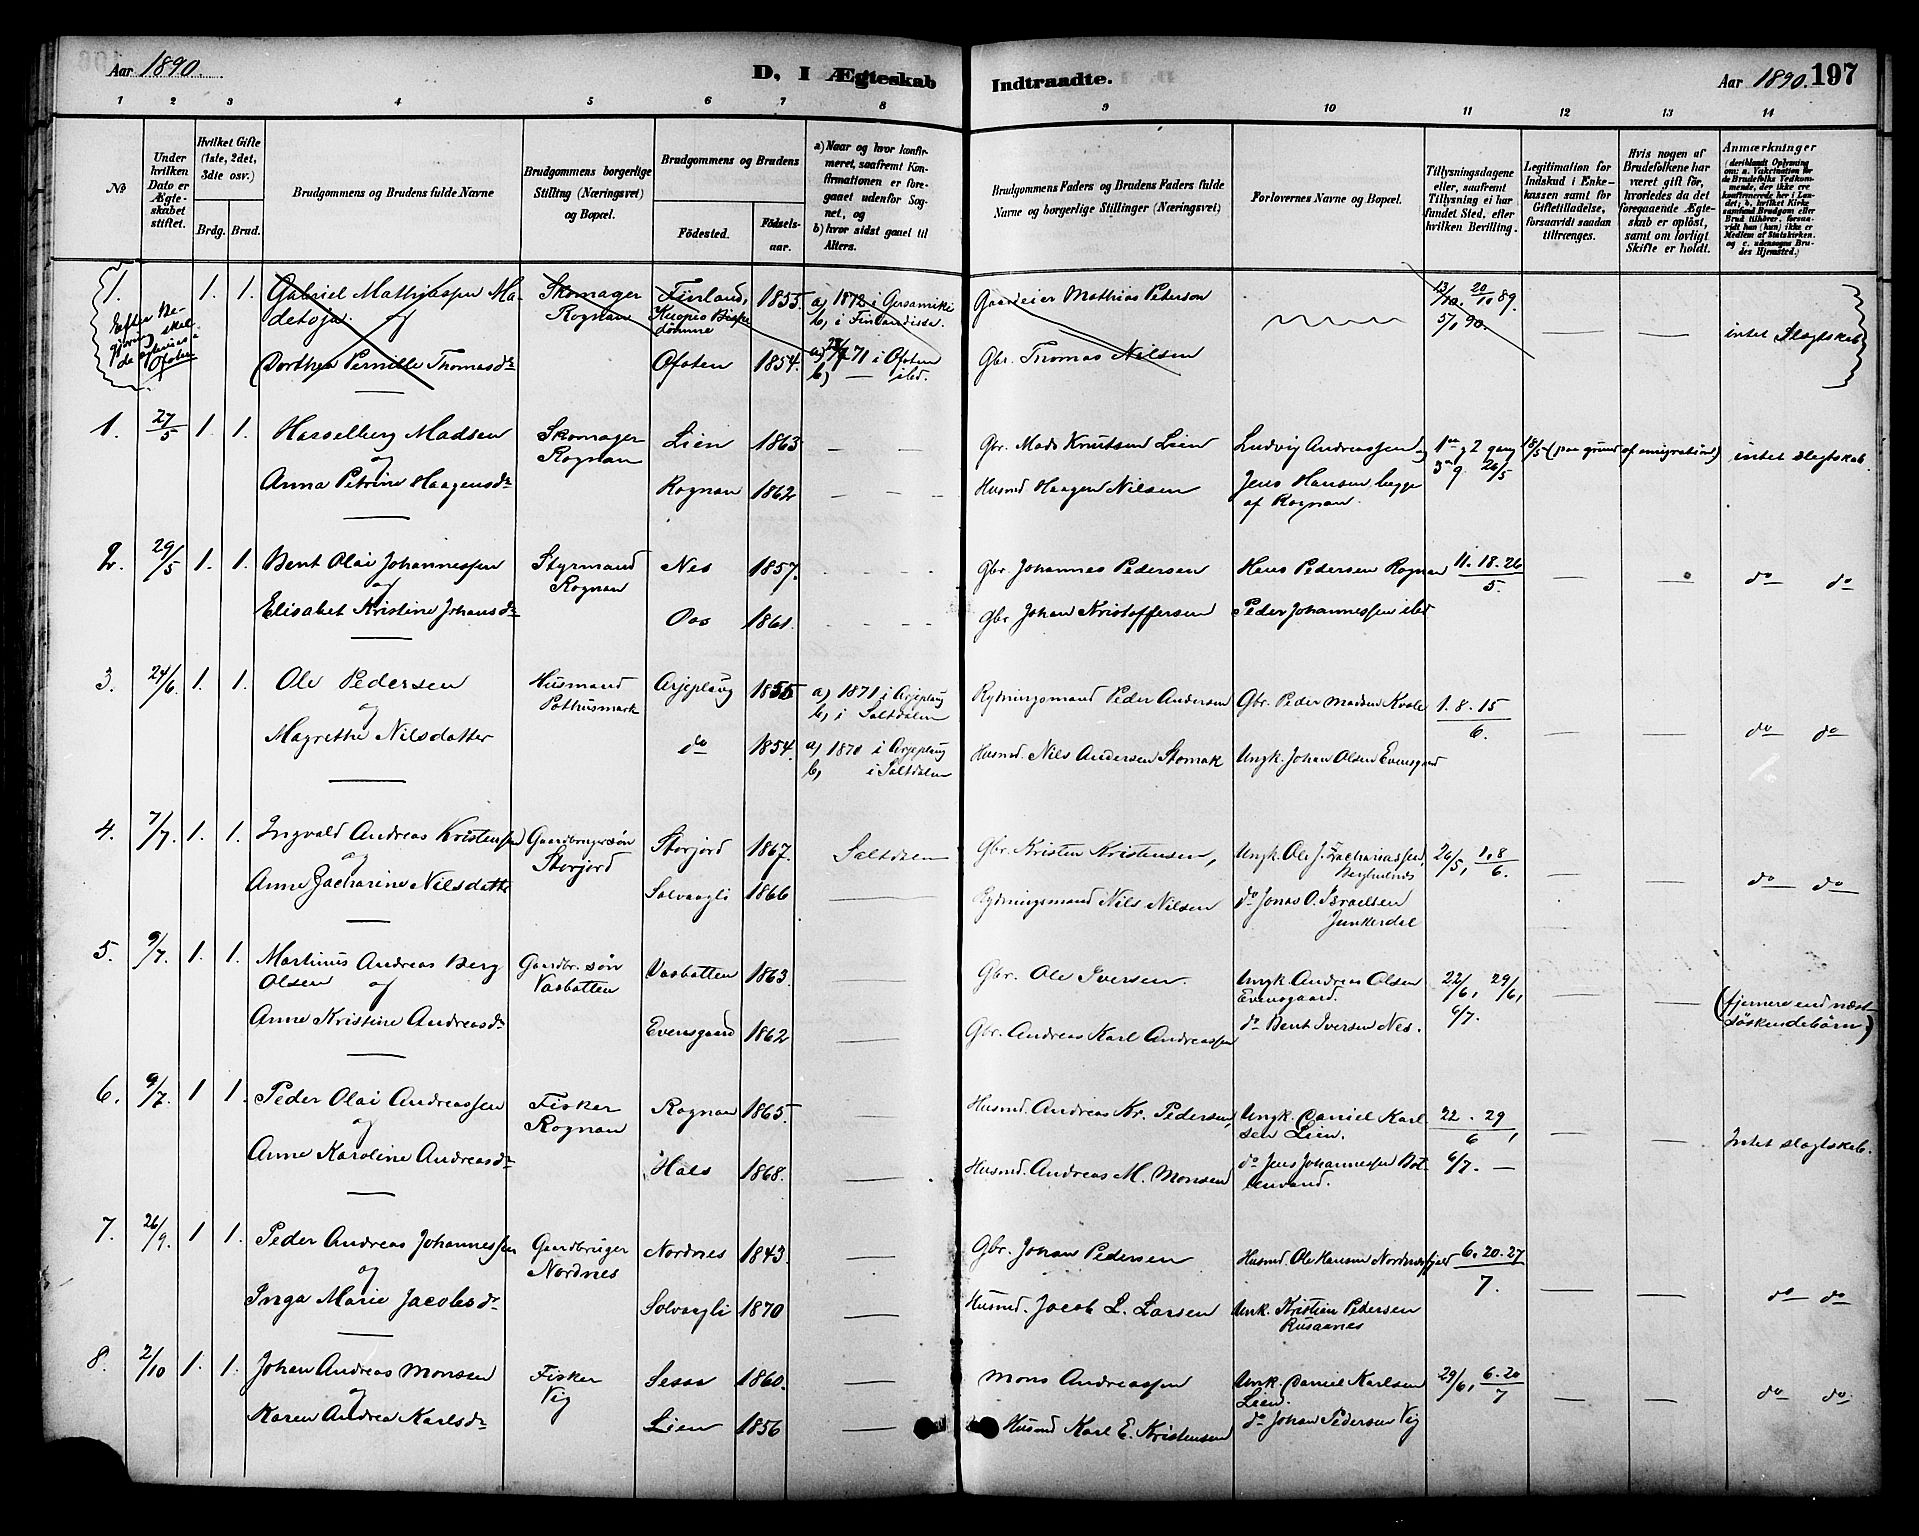 Aar 1890.
D, I Ægteskab
Indtraadte.
Aar 1890. 197
1 2 3 4 5 6 7 8 9 10 11 12 13 14
No
Under hvilken Dato er Ægteskabet stiftet.
Hvilket Gifte (1ste, 2det, 3die osv.)
Brdg. Brud.
Brudgommens og Brudens fulde Navne
Brudgommens borgerlige Stilling (Næringsvei) og Bopæl.
Brudgommens og Brudens
Födested. Födselsaar.
a) Naar og hvor konfirmeret, saafremt Konfirmationen er foregaaet udenfor Sognet, og
b) hvor sidst gaaet til Alters.
Brudgommens Faders og Brudens Faders fulde Navne og borgerlige Stillinger (Næringsvei)
Forlovernes Navne og Bopæl.
Tillysningsdagene eller, saafremt Tillysning ei har fundet Sted, efter hvilken Bevilling.
Legitimation for Indskud i Enkekassen samt for Giftetilladelse, forsaavidt saadan tiltrænges.
Hvis nogen af Brudefolkene har været gift för, hvorledes da det foregaaende Ægteskab er oplöst, samt om lovligt Skifte er holdt.
Anmærkninger
1. 1. 1. Gabriel Mathiassen Madetoja Skomager Rognan Finland, Kuopio Bispedömme 1855 a) 1872 i b) i Finland Gaardeier Mathias Peterson 13/10. 20/10 89. 5/1 90. — — intet Slagtskab
og
Dorthea Pernille Thomasdr Ofoten 1854. 71 i Ofoten b) — ibd. Gbr. Thomas Nilsen
1. 27/5 1. 1. Hasselberg Madsen Skomager Rognan Lien 1863 — — — Gbr. Mads Knutsen Lien Ludvig Andreassen og 1ste og 2 gang 18/5 (paa grund af emigration) intet slagtskab.
og
Anna Petrine Haagensdr Rognan 1862 — — — Husmd Haagen Nilsen Jens Hansen begge af Rognan. 3die g. 26/5
2. 29/5 1. 1. Bent Olai Johannessen Styrmand Rognan Nes 1857. Gbr. Johannes Pedersen Hans Pedersen Rognan 11. 18. 26/5. — — do do
og
Elisabet Kristine Johansdr Oas 1861. Gbr. Johan Kristoffersen Peder Johannessen ibd
3. 24/6. 1. 1. Ole Pedersen Husmand Pothusmark Arjeplaug 1855 a) 1871 i Arjeplaug b) i Saltdalen Rydningsmand Peder Andersen Gbr. Peder Madsen Kvale 1. 8. 15/6. — — do do
og
Magrethe Nilsdatter do 1854. a) 1870 i Arjeplaug b) i Saltdalen Husmd. Nils Andersen Stomak Ungk. Johan Olsen Evensgaard
4. 7/7. 1. 1. Ingvald Andreas Kristensen Gaardbrugersøn Storjord Storjord 1867. Saltdalen Gbr. Kristen Kristensen, Ungk. Ole J. Zachariassen 26/5, 1.8/6. — — do do
og
Anne Zacharine Nilsdatter Solvaagli 1866 — Rydningsmand Nils Nilsen do Jonas O. Israelsen Junkerdal
5. 9/7. 1. 1. Martinus Andreas Berg Olsen Gaardbr. søn Vasbotten Vasbotten 1863. — Gbr. Ole Iversen. Ungk. Andreas Olsen Evensgaard. 22/6, 29/6, 6/7. — — (fjernere end næstsöskendebörn)
og
Anne Kristine Andreasdr Evensgaard 1862 — Gbr. Andreas Karl Andreassen do Bent Iversen Nes.
6. 9/7. 1 1. Peder Olai Andreassen Fisker Rognan Rognan 1865. — Husmd. Andreas Kr. Pedersen, Ungk. Daniel Karlsen Lien. 22. 29/6, — — Intet slagtskab.
og
Anne Karoline Andreasdr Hals 1868. — Husmd. Andreas M. Monsen do Jens Johannessen Botlenvand. 6/7. —
7. 26/9. 1 1. Peder Andreas Johannessen Gaardbruger Nordnes Nordnes 1843. — Gbr. Johan Pedersen Husmd. Ole Hansen Nordnesfjeld 6. 20. 27/7. — — do do
og
Inga Marie Jacobsdr Solvaagli 1870 — Husmd. Jacob L. Larsen Unk. Kristian Pedersen Rusaanes
8. 2/10 1. 1. Johan Andreas Monsen Fisker Vig Sessa 1860. — Mons Andreassen Unk. Daniel Karlsen Lien. 29/6, 6. 20/7 — — do do.
og
Karen Andrea Karlsdr Lien 1856 — Husmd Karl E. Kristensen do Johan Pedersen Vig